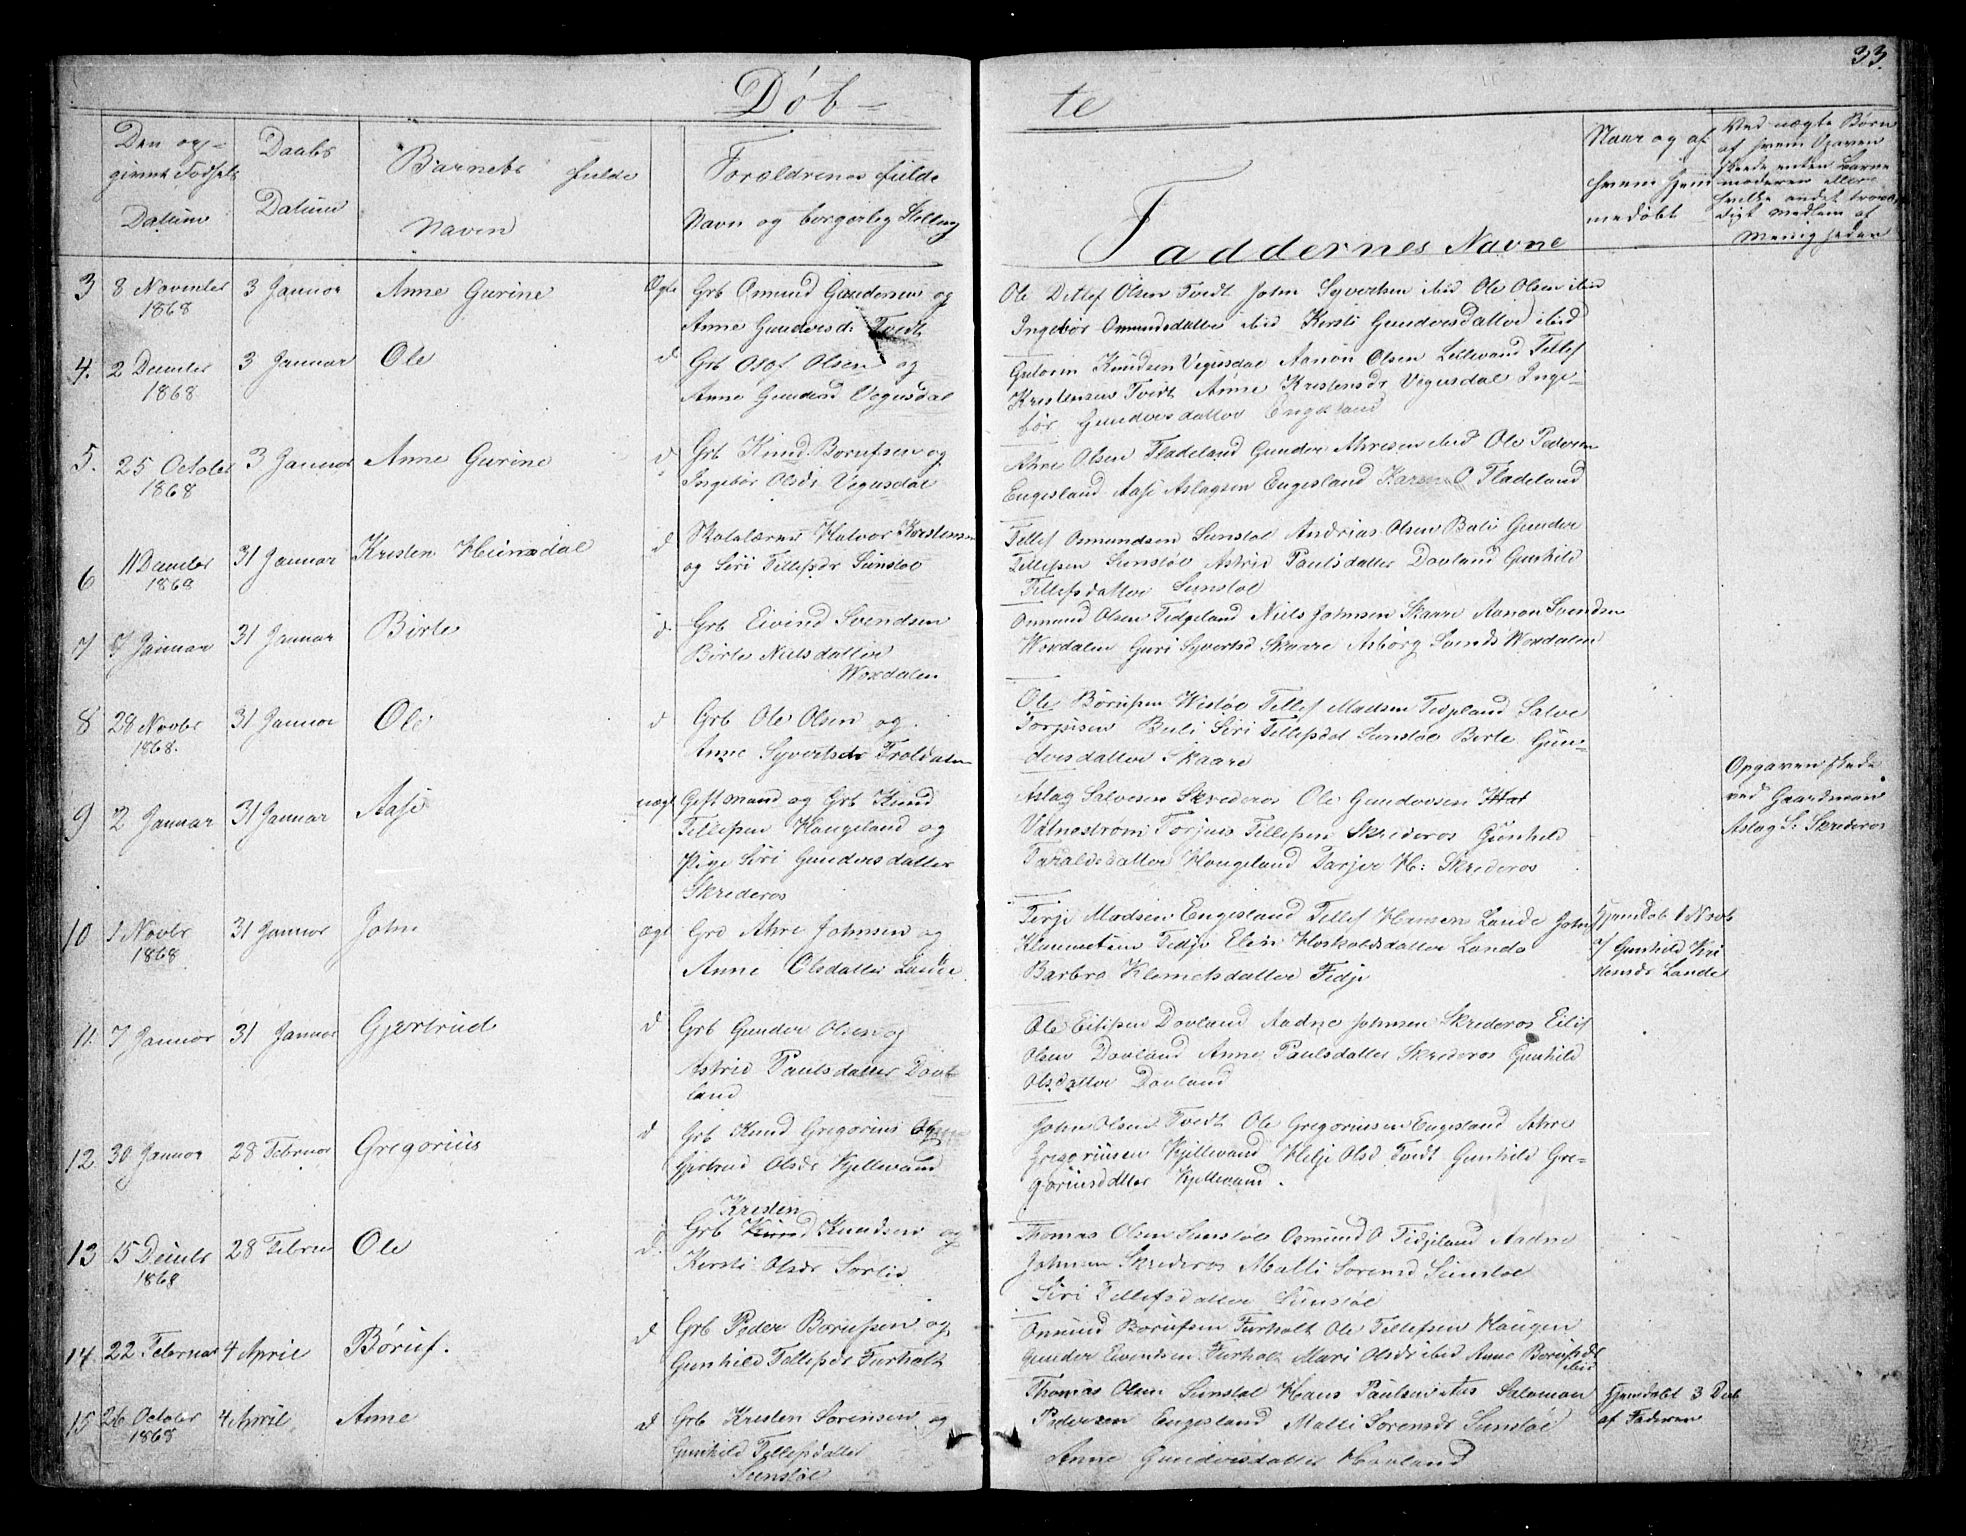 33.
Døb-
te
Den opgivne Fødsels Datum
Daabs Datum
Barnets fulde Navn
Forældrenes fulde Navn og borgerlig Stilling
Faddernes Navne
Naar og af hvem hjemmedøbt
Ved uægte Børn af hvem Opgaven skeede enten Barnemoderen eller hvilke andet troværdigt medlem af Menigheden
3 8 November 3 Januar Anne Gurine Ægte Grb Omund Gundersen og
1868
Anne Gundersd: Tvedt
Ole Ditlef Olsen Tvedt John Syvertsen ibid Ole Olsen ibid
Ingebør Omundsdatter ibid Kirsti Gundersdatter ibid
4. 2 December 3 Januar Ole d Grb Olof Olsen og
1868
Anne Gundersd Vegusdal
Guttorm Knudsen Vegusdal Aanon Olsen Lillevand Tellef
Kristensen Tvedt Anne Kristensdr Vegusdal Inge-
bør Gundersdatter Engesland
5. 25 October 3 Januar Anne Gurine d Grb Knud Børufsen og
1868
Ingebør Olsdr Vegusdal
Ahre Olsen Fladeland Gunder Ahresen ibid Ole Pedersen
Engesland Aase Aslagsen Engesland Karen O Fladeland
6 11 December 31 Januar Kristen Heimdal d Skolelærer Halvor Kristensen
1868
og Siri Tellefsdr Sunsløe
Tellef Osmundsen Sunsløl Andrias Olsen Bali Gunder
Tellefsen Sunsløl Astrid Paulsdatter Dovland Gunhild
Tellefsdatter Sunsløl
7 7 Januar 31 Januar Birte d Grb Eivind Svendsen
Birte Nielsdatter
Woxdalen
Omund Olsen Fidjeland Niels Johnsen Skaare Aanon Svendsen
Woxdalen Guri Syvertsd Skaare Asborg Svends Woxdalen
8 28 Novbr 31 Januar Ole d Grb Ole Olsen og
1868.
Anne Syvertsdr Troldalen
Ole Børufsen Wesløl Tellef Madsen Fidjeland Salve
Torjusen Buli Siri Tellefsdat Sunsløl Berte Gun-
dersdatter Skaare
9 2 Januar 31 Januar Aase uægt Gift mand og Grb Knud
Tellefsen Haugeland og
Pige Siri Gundersdatter
Skrederos
Aslag Salvesen Skrederos Ole Gundersen
Vatnestrøm Torjus Tellefsen Skrederos Gunhild
Taraldsdatter Haugeland Tarjer H: Skrederos
Opgaven skede
ved Gaardman
Aslag S. Skrederos
10 1 Novbr 31 Januar John ægt Grb Ahre Johnsen og
1868
Anne Olsdatter Lande
Terje Madsen Engesland Tellef Hansen Lande John
Klemetsen Fidje Elen Hoskoldsdatter Lande
Barbro Klemetsdatter Fidje
Hjemdøb 1 Novb
af Gunhild Kri
stensdr Lande
11. 7 Januar 31 Januar Gjertrud d Grb Gunder Olsen og
Astrid Paulsdatter Dov-
land
Ole Eilifsen Dovland Aadne Johnsen Skrederos Eilif
Olsen Dovland Anne Paulsdatter Skrederos Gunhild
Olsdatter Dovland
12. 30 Januar 28 Februar Gregorius d Grb Knud Gregorius og
Gjertrud Olsdr Kjellevand
John Olsen Tvedt Ole Gregoriusen Engesland Ahre
Gregoriusen Kjellevand Helje Olsd Tvedt Gunhild Gre-
goriusdatter Kjellevand.
Kristen
13 15 Decmbr 28 Februar Ole d. Grb Knud Knudsen og
1868
Kirsti Olsdr Sørlid
Thomas Olsen Sunsløl Osmund O Fidjeland Aadne
Johnsen Skrederos Malli Sorensd Sunsløl
Siri Tellefsdatter Sunsløl
14. 22 Februar 4 April Børuf. d Grb Peder Børufsen og
Gunhild Tellefsdr Furholt
Omund Børufsen Furholt Ole Tellefsen Haugen
Gunder Eivindsen Furholt Mari Olsdr ibid Anne Børufsdt
ibid
15 26 October 4 April Anne d Grb Kristen Sørensen og
1868
Gunhild Tellefsdatter
Sunsløl
Thomas Olsen Sunsløl Hans Paulsen Salomon
Pedersen Engesland Malli Sørensdr Sunsløl
Anne Gundersdatter Hovland
Hjemdøbt 3 Deb
af Faderen